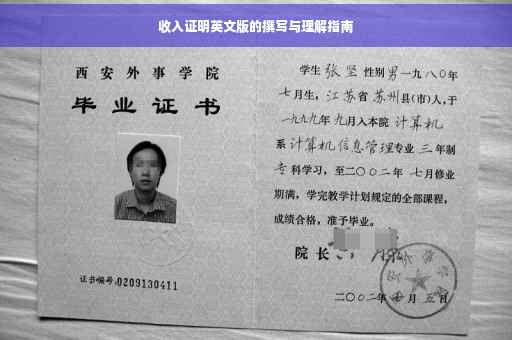 收入证明英文版的撰写与理解指南
西安外事学院
毕业证书
证书编号:0209130411
学生 张坚 性别 男 一九八〇年
七月生，江苏省 苏州县(市)人，于
一九九九年 九月入本院 计算机
系 计算机信息管理专业 三 年制
专 科学习，至二〇〇二年 七月修业
期满，学完教学计划规定的全部课程，
成绩合格，准予毕业。
院长
二〇〇二年 月 五日